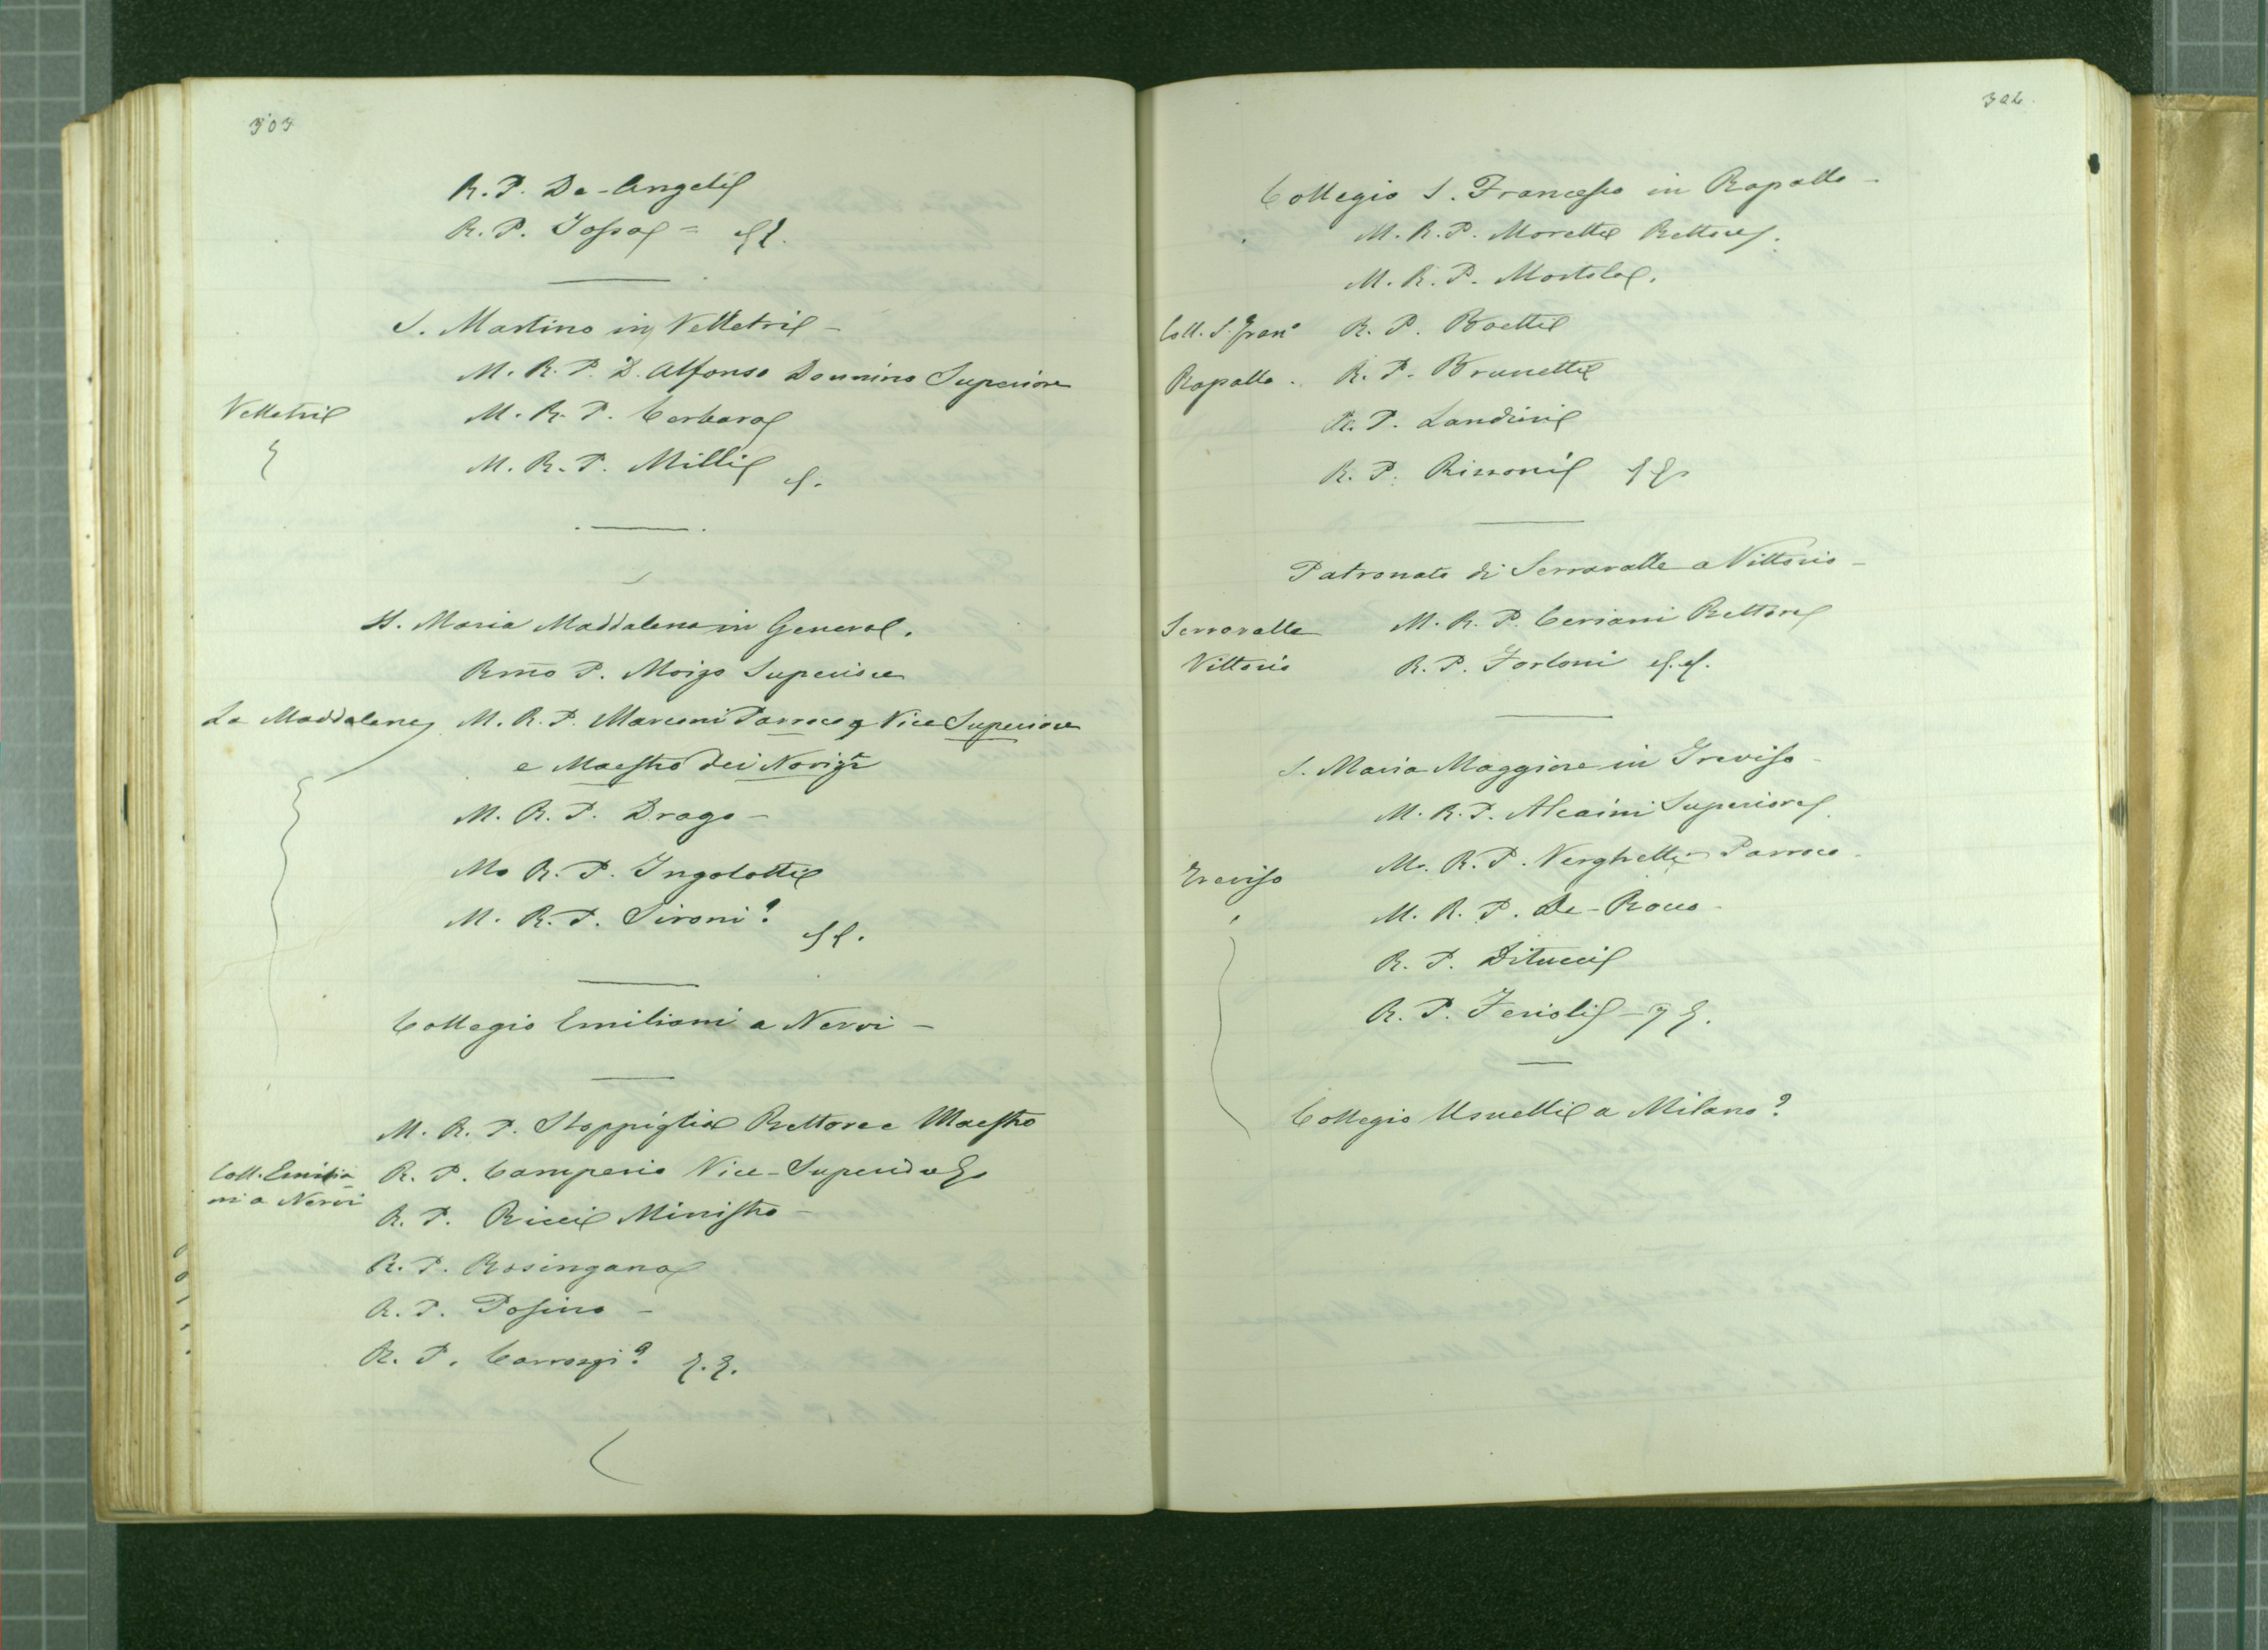 303
R. P. De-Angelis
R. P. Iossa =
S. Martino in Velletri -
M. R. P. D. Alfonso Donnino Superiore
Velletri
M. R. P. Cerbara
M. R. P. Milli
S. Maria Maddalena in Genova.
Rmo P. Moizo Superiore
La Maddalena
M. R. P. Marconi Parroco, Vice Superiore
e Maestro dei Novizi
M. R. P. Drago -
M. R. P. Ingolotti
M. R. P. Sironi?
Collegio Emiliani a Nervi -
M. R. P. Stoppiglia Rettore e Maestro
Coll. Emilia-
ni a Nervi
R. P. Camperio Vice-Superiore
R. P. Ricci Ministro -
R. P. Rosingana
R. P. Posino -
R. P. Carrozzi?
304.
Collegio S. Francesco in Rapallo -
M. R. P. Moretti Rettore.
M. R. P. Mortola.
Coll. S. Frano
Rapallo.
R. P. Boetti
R. P. Brunetti
R. P. Landini
R. P. Rissoni
Patronato di Serravalle a Vittorio -
Serravalle
Vittorio
M. R. P. Ceriani Rettore
R. P. Forloni
S. Maria Maggiore in Treviso -
M. R. P. Alcaini Superiore
M. R. P. Verghetti Parroco -
Treviso
M. R. P. De-Rocco -
R. P. Ditucci
R. P. Ferioli -
Collegio Usuelli a Milano?